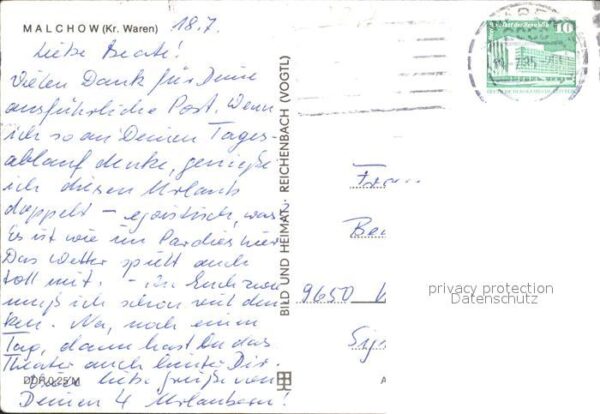 MALCHOW (Kr. Waren) 18.7.
Liebe Beate!
Vielen Dank für Deine
ausführliche Post. Wenn
ich so an Deinen Tages-
ablauf denke, genieße
ich diesen Urlaub
doppelt – egoistisch, was?
Es ist wie im Paradies hier
Das Wetter spielt auch
toll mit. –
muß ich schon mit den-
ken. Na, noch einen
Tag, dann hast du das
Theater auch hinter Dir.
liebe Grüße von
Deinen 4 Urlaubern!
DDR 0,25 M
BILD UND HEIMAT · REICHENBACH (VOGTL)
10
Frau
9650
privacy protection
Datenschutz
A